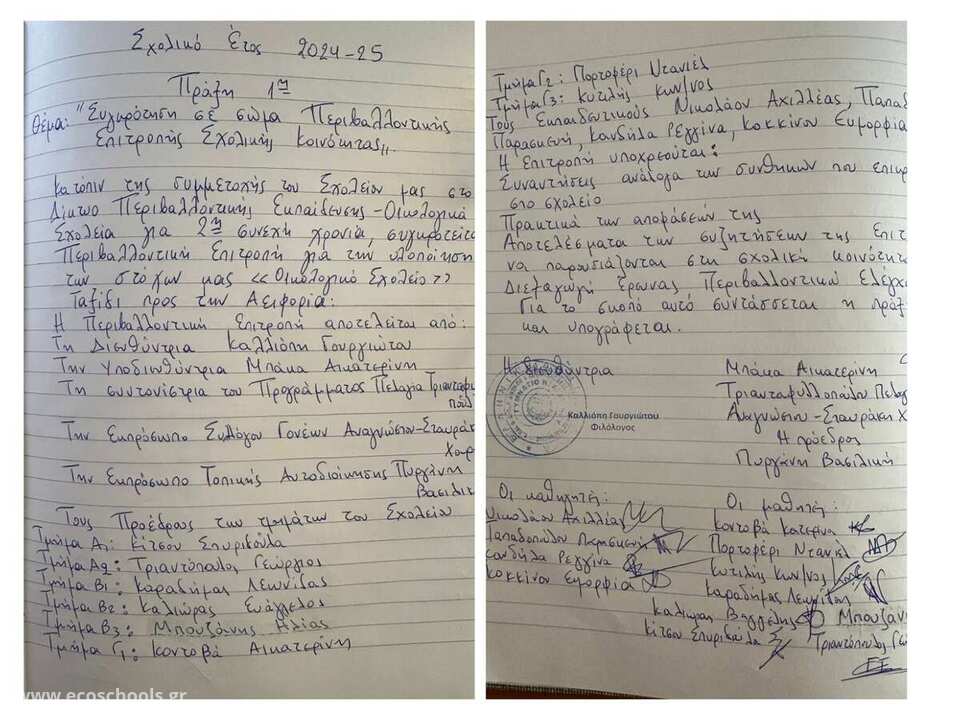 Σχολικό Έτος 2024-25
Πράξη 1η
Θέμα: "Συγκρότηση σε σώμα Περιβαλλοντικής
Επιτροπής Σχολικής Κοινότητας"
Κατόπιν της συμμετοχής του Σχολείου μας στο
Δίκτυο Περιβαλλοντικής Εκπαίδευσης-Οικολογικά
Σχολεία για 2η συνεχή χρονιά, συγκροτείτα
Περιβαλλοντική Επιτροπή για την υλοποίηση
των στόχων μας <<Οικολογικό Σχολείο>>
Ταξίδι προς την Αειφορία:
Η Περιβαλλοντική Επιτροπή αποτελείται από:
Τη Διευθύντρια Καλλιόπη Γουργιώτου
Την Υποδιευθύντρια Μπάκα Αικατερίνη
Τη συντονίστρια του Προγράμματος Πελαγία Τριανταφυ
πούλ
Την Εκπρόσωπο Συλλόγου Γονέων Αναγνώστου-Σταυράκ
Χαρ
Την Εκπρόσωπο Τοπικής Αυτοδιοίκησης Πυργάνη
Βασιλικ
Τους Προέδρους των τμημάτων του Σχολείου
Τμήμα Α1: Κίτσου Σπυριδούλα
Τμήμα Α2: Τριαντόπουλος Γεώργιος
Τμήμα Β1: Καραδήμας Λεωνίδας
Τμήμα Β2: Καλιώρας Ευάγγελος
Τμήμα Β3: Μπουζάνης Ηλίας
Τμήμα Γ1: Κοντοβά Αικατερίνη
www.ecoschools.gr
Τμήμα Γ2: Πορτοφέρι Ντανιέλ
Τμήμα Γ3: Κυτιλής Κων/νος
Τους Εκπαιδευτικούς Νικολάου Αχιλλέας, Παπαδ
Παρασκευή, Κανδύλα Ρεγγίνα, Κοκκίνου Ευμορφία
Η Επιτροπή υποχρεούται:
Συναντήσεις ανάλογα των συνθηκών που επικρ
στο σχολείο
Πρακτικά των αποφάσεών της
Αποτελέσματα των συζητήσεων της Επιτ
να παρουσιάζονται στη σχολική κοινότητ
Διεξαγωγή Έρευνας Περιβαλλοντικού Ελέγχ
Για το σκοπό αυτό συντάσσεται η πράξ
και υπογράφεται.
Η Διευθύντρια
Καλλιόπη Γουργιώτου
Φιλόλογος
Μπάκα Αικατερίνη
Τριανταφυλλοπούλου Πελαγ
Αναγνώστου-Σταυράκη Χ
Η πρόεδρος
Πυργάνη Βασιλική
Οι καθηγητές:
Νικολάου Αχιλλέας
Παπαδοπούλου Παρασκευή
Κανδύλα Ρεγγίνα
Κοκκίνου Ευμορφία
Οι μαθητές:
Κοντοβά Κατερίνα
Πορτοφέρι Ντανιέλ
Κυτιλής Κων/νος
Καραδήμας Λεωνίδας
Καλιώρας Βαγγέλης
Μπουζάνη
Κίτσου Σπυριδούλα
Τριαντόπουλος Γεώ